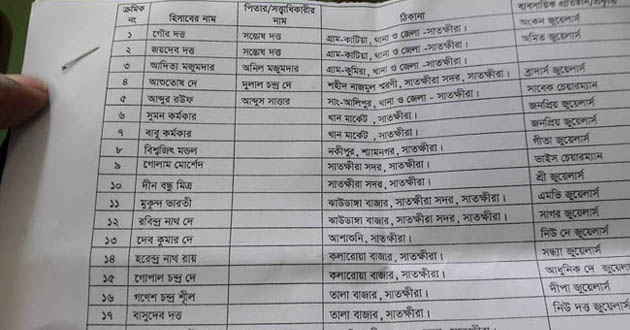 ক্রমিক নং হিসাবের নাম পিতার/সত্ত্বাধিকারীর নাম ঠিকানা ব্যবসায়িক
১ গৌর দত্ত সন্তোষ দত্ত গ্রাম-কাটিয়া, থানা ও জেলা -সাতক্ষীরা। অংকন জুয়েলার্স
২ জয়দেব দত্ত সন্তোষ দত্ত গ্রাম-কাটিয়া, থানা ও জেলা -সাতক্ষীরা। অমিত জুয়েলার্স
৩ আদিত্য মজুমদার অনিল মজুমদার গ্রাম-কুমিরা, থানা ও জেলা -সাতক্ষীরা।
৪ আশুতোষ দে দুলাল চন্দ্র দে শহীদ নাজমুল স্মরণী, সাতক্ষীরা সদর, সাতক্ষীরা। ব্রাদার্স জুয়েলার্স
৫ আব্দুর রউফ আব্দুস সাত্তার সাং-আলিপুর, থানা ও জেলা - সাতক্ষীরা। সাবেক চেয়ারম্যান
৬ সুমন কর্মকার খান মার্কেট, সাতক্ষীরা। জনপ্রিয় জুয়েলার্স
৭ বাবু কর্মকার খান মার্কেট, সাতক্ষীরা। জনপ্রিয় জুয়েলার্স
৮ বিশ্বজিৎ মন্ডল নকীপুর, শ্যামনগর, সাতক্ষীরা। গীতা জুয়েলার্স
৯ গোলাম মোর্শেদ সাতক্ষীরা সদর, সাতক্ষীরা। ভাইস চেয়ারম্যান
১০ দীন বন্ধু মিত্র সাতক্ষীরা সদর, সাতক্ষীরা। শ্রী জুয়েলার্স
১১ মুকুন্দ ভারতী ঝাউডাঙ্গা বাজার, সাতক্ষীরা সদর, সাতক্ষীরা। এমভি জুয়েলার্স
১২ রবিন্দ্র নাথ দে ঝাউডাঙ্গা বাজার, সাতক্ষীরা সদর, সাতক্ষীরা। সাগর জুয়েলার্স
১৩ দেব কুমার দে আশাশুনি, সাতক্ষীরা। নিউ দে জুয়েলার্স
১৪ হরেন্দ্র নাথ রায় কলারোয়া বাজার, সাতক্ষীরা। সন্ধ্যা জুয়েলার্স
১৫ গোপাল চন্দ্র দে কলারোয়া বাজার, সাতক্ষীরা। আধুনিক দে জুয়েলার্স
১৬ গণেশ চন্দ্র শীল তালা বাজার, সাতক্ষীরা। দীপা জুয়েলার্স
১৭ বাসুদেব দত্ত তালা বাজার, সাতক্ষীরা। নিউ দত্ত জুয়েলার্স